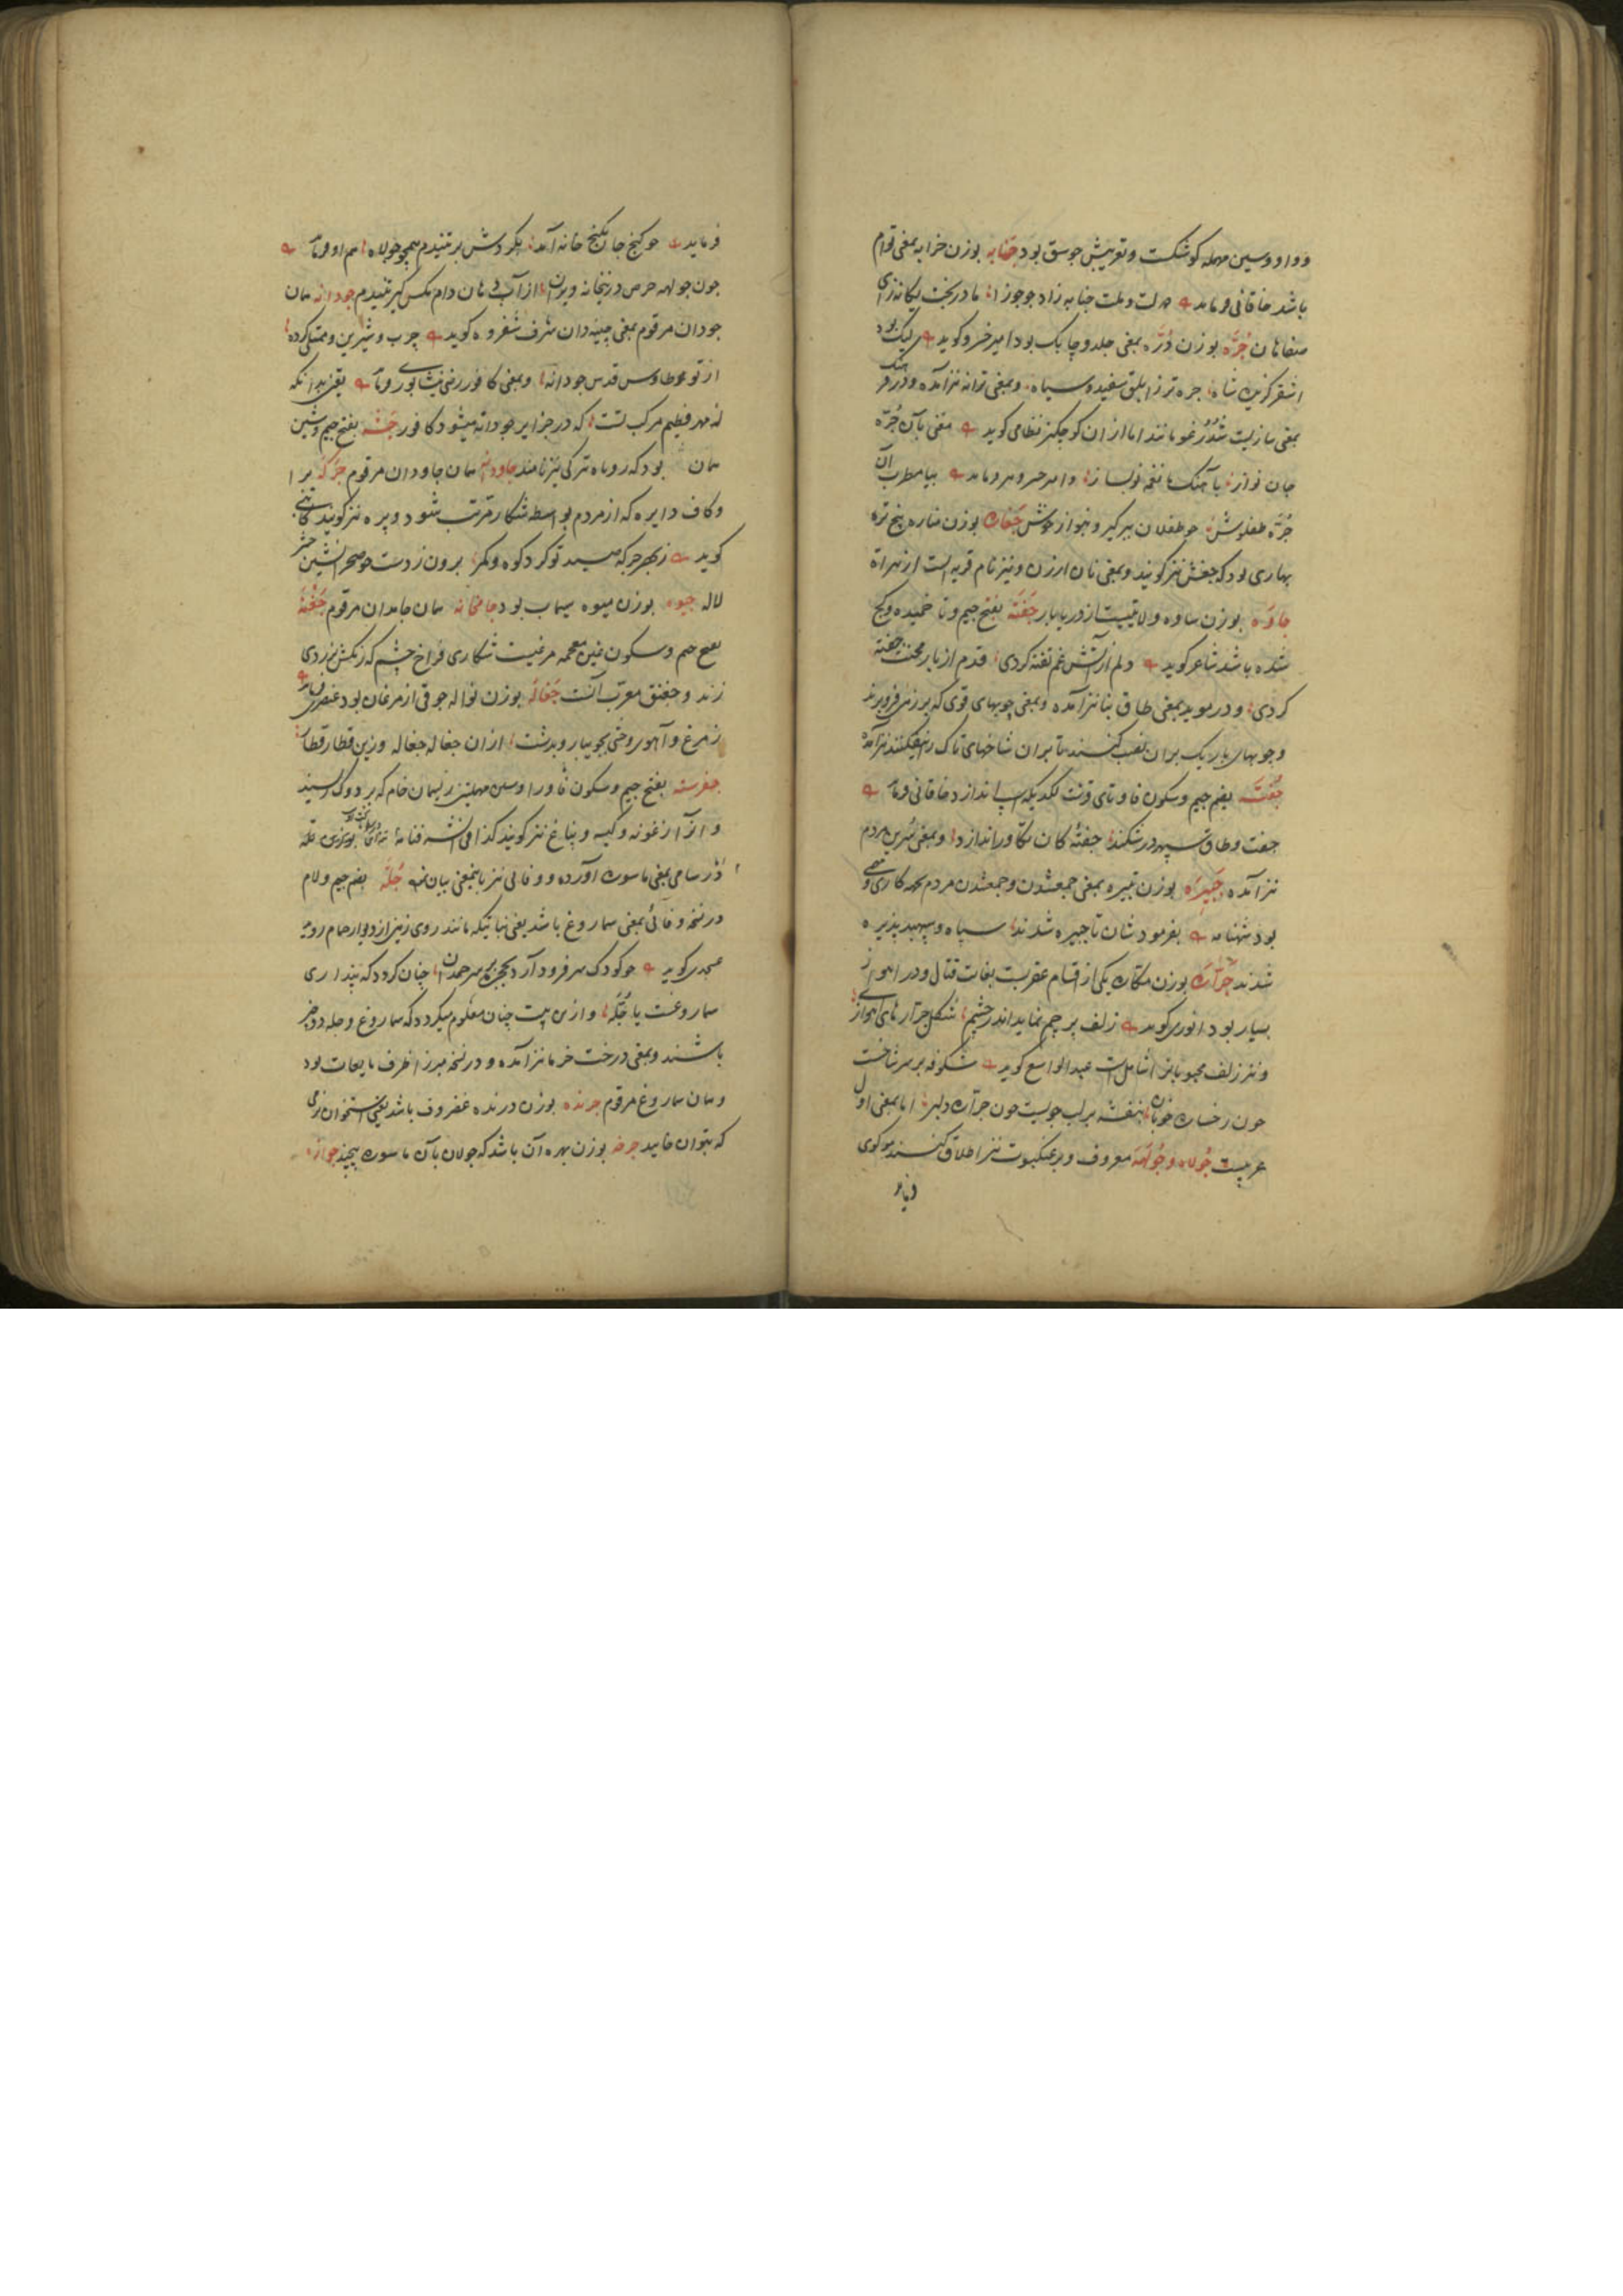 و واو و سین مهمله کوشکست و تعریبش جوسق بود جنابه بوزن خرابه بمعنی توام
باشد خاقانی فرماید دولت و ملت جنابه زاد جو جوزا مادر بخت یکانه زای
صفاهان جره بوزن دره بمعنی جلد و چابک بود امیر خسرو کوید لیک بود
اشقر کزین شاه جره تر ز ابلق سفید و سیاه و بمعنی ترانه نیز آمده و در فرهنک
بمعنی سازیست شدرغو مانند اما از ان کوچکتر نظامی کوید مغنی بآن جره
جان نواز بآهنک ما نغمه نو بساز و امیر خسرو هم فرماید بیا مطرب آن
جره طفلوش چو طفلان ببر کیر و بنواز خوش جغاره بوزن مناره پنج تره
بهاری بود که جغش نیز کویند و بمعنی نان ارزن و نیز نام قریه است از هراة
جاوه بوزن ساوه ولایتیست از دریابار جفته بفتح جیم و تا خمیده و کج
شده باشد شاعر کوید دلم از آتش غم تفته کردی قدم از بار محنت جفته
کردی و در موید بمعنی طاق بنا نیز آمده و بمعنی چوبهای قوی که بر زمین فرو برند
و چوبهای باریک بران نصب کنند تا بران شاخهای تاک رز بیفکنند نیز آمده
جفته بضم جیم و سکون فا و تای قرشت لکدیکه اسپ اندازد خاقانی فرماید
جفت و طاق سپهر در شکند جفته کان تکاور اندازد و بمعنی سرین مردم
نیز آمده جبیره بوزن نبیره بمعنی جمعشدن و جمعشدن مردم بجهه کاری و مهمی
بود شهنامه بفرمودشان تا جبیره شدند سپاه و سپهبد پذیره
شدند جراره بوزن مکاره یکی از اقسام عقربست بغایت قتال و در اهواز
بسیار بود انوری کوید زلف پرچم نماید اندر چشم شکل جراره های اهواز
و نیز زلف محبوبانرا شامل است عبد الواسع کوید شکوفه بر سر شاخست
چون رخساره خوبان بنفشه بر لب جویست چون جراره دلبر اما بمعنی اول
عربیست جولاه و جولهه معروف و بر عنکبوت نیز اطلاق کنند مولوی
فرماید
فرماید چو کنج جان بکنج خانه آمد بکردش بر تنیدم همچو جولاه هم او فرماید
چون جولهه حرص درینخانه ویران از آب دهان دام مکس کیر تنیدم جودانه همان
جودان مرقوم بمعنی چینه دان شرف شفروه کوید چرب و شیرین و ممتلی کرده
از تو طاوس قدس جودانه و بمعنی کافور رزفی نیشابوری فرماید یقین بدانکه
نه مهر فطیم مرکب تست که در جزایر جودانه میشود کافور جشه بفتح جیم و شین
همان بود که روباه ترکی نیز نامند جاودانه همان جاودان مرقوم جرکه برا
و کاف دایره که از مردم بواسطه شکار مرتب شود و پره نیز کویند کاتبی
کوید ز بهر جرکه صید تو کرد کوه و کمر برون ز دست چو صحرا نشین حشر
لاله جیوه بوزن میوه سیماب بود جامخانه همان جامدان مرقوم جغنه
بفتح جیم و سکون غین معجمه مرغیست شکاری فراخ چشم که رنکش بزردی
زند و جغنق معرب آنست جغاله بوزن نواله جوقی از مرغان بود عنصری فرماید
ز مرغ و آهو وحشی بجویبار و بدشت ازان جغاله جغاله و زین قطار قطار
جفرسته بفتح جیم و سکون فا و را و سین مهملتین ریسمان خام که بر دوک ریسند
و آنرا زغونه و کیسه و پناغ نیز کویند کذا فی النسخه وفائی
و در سامی بمعنی ماسوره آورده و وفائی نیز باینمعنی بیان نموده جله بضم جیم و لام
در نسخه وفائی بمعنی سماروغ باشد یعنی نباتیکه مانند روی زمین از دیوار حمام روید
عسجدی کوید چنان کردد که پنداری
سماروغست یا جله و ازین بیت چنان معلوم میکردد که سماروغ و جله دو چیز
باشند و بمعنی درخت خرما نیز آمده و در نسخه میرزا ظرف مایعات بود
و همان سماروغ مرقوم جرنده بوزن درنده غضروف باشد یعنی استخوان نرمی
که بتوان خایید جرخه بوزن بهره آن باشد که جولان بآن ماسوره پیچند جوازه